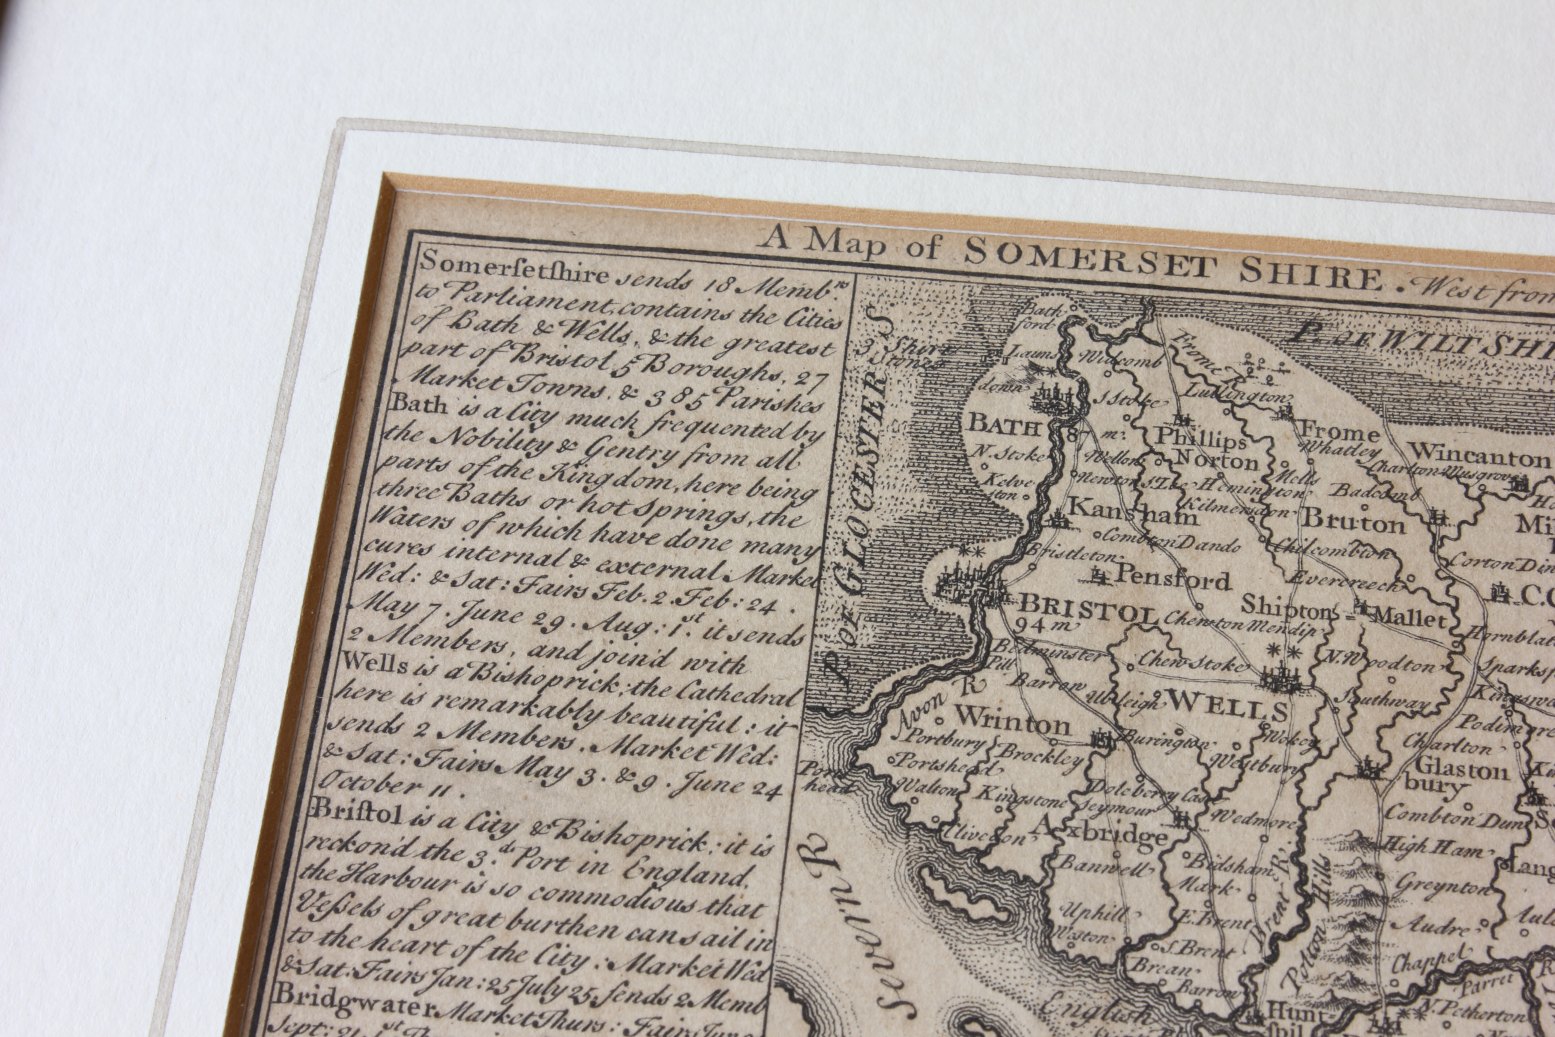 A Map of SOMERSET SHIRE. West from
Somerſetſhire sends 18 Membrs
to Parliament, contains the Cities
of Bath & Wells, & the greatest
part of Bristol 5 Boroughs, 27
Market Towns, & 385 Parishes
Bath is a City much frequented by
the Nobility & Gentry from all
parts of the Kingdom, here being
three Baths or hot Springs, the
Waters of which have done many
cures internal & external Market
Wed: & Sat: Fairs Feb. 2 Feb: 24.
May 7. June 29. Aug: 1st. it sends
2 Members, and join'd with
Wells is a Bishoprick; the Cathedral
here is remarkably beautiful: it
sends 2 Members. Market Wed:
& Sat: Fairs May 3. & 9. June 24
October 11.
Briſtol is a City & Bishoprick: it is
reckon'd the 3d. Port in England,
the Harbour is so commodious that
Veſsels of great burthen can sail in
to the heart of the City: Market Wed
& Sat: Fairs Jan: 25 July 25 ſends 2 Memb
Bridgwater Market Thurs: Fairs June
Sept: 21.st
P. OF GLOCESTER S.
3 Shire Stones
P. OF WILTSHI
Bath
ford
Widcomb
Frome R.
Lullington
BATH
87 m.
S. Stoke
Phillips
Norton
Frome
Whatley
Wincanton
Charlton Musgrove
N. Stoke
Wellow
Mells
Kelve
ston
Newton S. Lo
Hemington
Kilmersdon
Badcomb
Kansham
Bruton
Mi
Compton Dando
Chilcombton
Corton Din
Bristleton
Pensford
Evercreech
BRISTOL
94 m.
Chewton Mendip
Shipton
Mallet
Hornblat
Bedminster
Pill
Chew Stoke
N. Woodton
Sparksf
Barrow
Ubleigh
WELLS
Southway
Avon R
Wrinton
Podimore
Portbury
Brockley
Burington
Wokey
Westbury
Charlton
Portshead
Glaston
bury
Port
head
Walton
Kingstone
Seymour
Wedmore
Combton Dun
Clivedon
Axbridge
High Ham
Lang
Banwell
Bidsham
Mark
Greynton
Uphill
E. Brent
Brent R.
Polton Hills
Audre
S. Brent
Brean
Chappel
Severn R
Barrow
Parret
English
Hunt
ſpil
N. Petherton